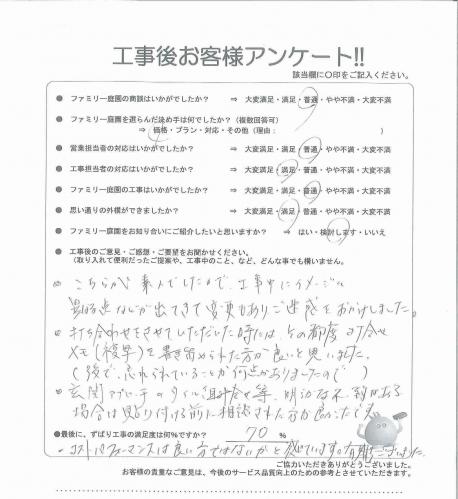 工事後お客様アンケート!!
該当欄に○印をご記入ください。
● ファミリー庭園の商談はいかがでしたか？ ⇒ 大変満足・満足・普通・やや不満・大変不満
● ファミリー庭園を選らんだ決め手は何でしたか？（複数回答可）
⇒ 価格・プラン・対応・その他（理由： ）
● 営業担当者の対応はいかがでしたか？ ⇒ 大変満足・満足・普通・やや不満・大変不満
● 工事担当者の対応はいかがでしたか？ ⇒ 大変満足・満足・普通・やや不満・大変不満
● ファミリー庭園の工事はいかがでしたか？ ⇒ 大変満足・満足・普通・やや不満・大変不満
● 思い通りの外構ができましたか？ ⇒ 大変満足・満足・普通・やや不満・大変不満
● ファミリー庭園をお知り合いにご紹介したいと思いますか？ ⇒ はい・検討します・いいえ
● 工事後のご意見・ご感想・ご要望をお聞かせください。
（取り入れて便利だったご提案や、工事中のこと、など、どんな事でも構いません。
こちらが素人でしたので、工事中にイメージと
異なる点などが出てきて変更もありご迷惑をおかけしました。
打ち合わせをさせていただいた時には、その都度打合せ
メモ（複写）を書き留められた方が良いと思いました。
（後で、忘れられていることが何点かありましたので）
玄関アプローチのタイル組合せ等、
場合は貼り付ける前に相談された方が良かったです。
●最後に、ずばり工事の満足度は何％ですか？ 70 ％
・コストパフォーマンスは良い方ではないかと感じています。有難うございました。
ご協力いただきありがとうございました。
お客様の貴重なご意見は、今後のサービス品質向上のための参考とさせていただきます。